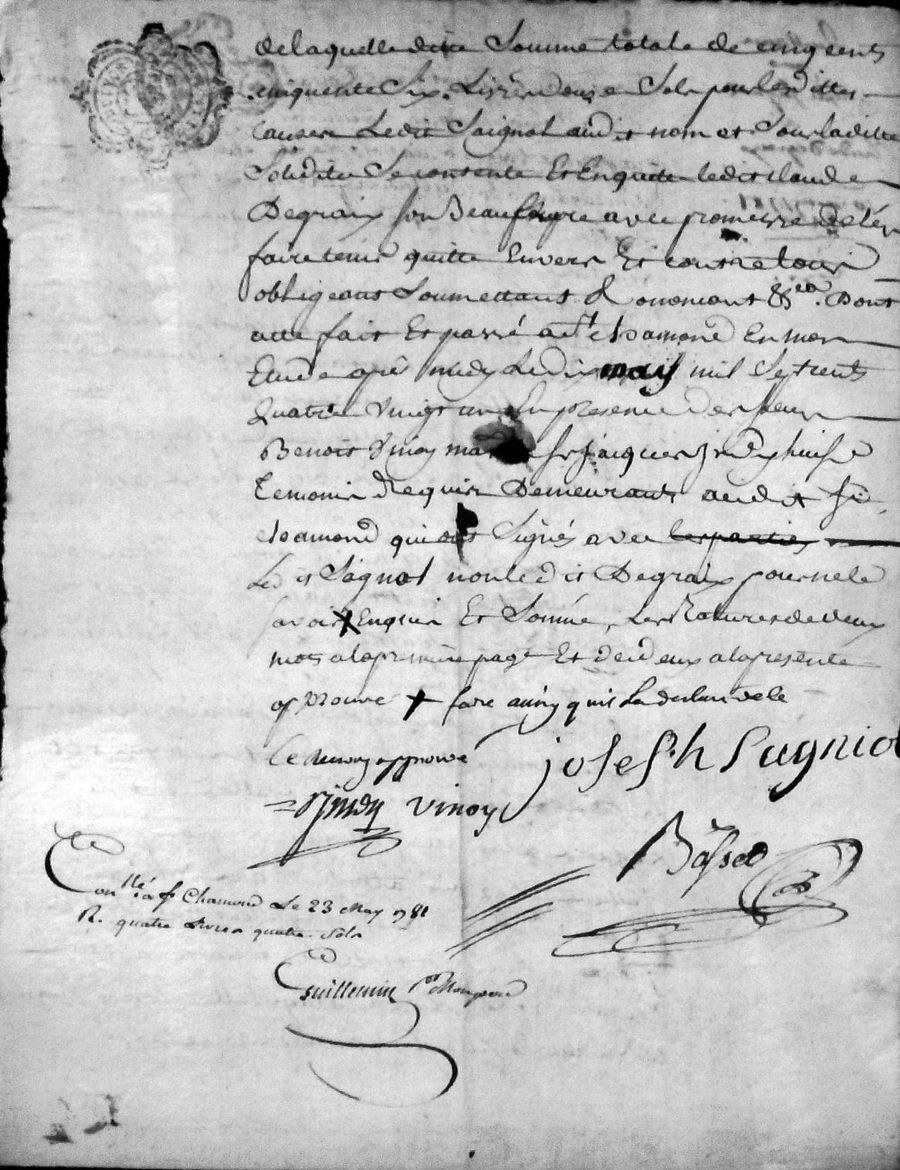 de laquelle dite Somme totale de cinq cents
cinquente Six Livres douze Sols pour les dittes
causes Ledit Saignol audit nom et Sous la ditte
Solidité Se contente Et Enquitte ledit Claude
Degraix son Beaufrere avec promesse de l'en
faire tenir quitte Envers Et contre tous
obligeants Soumettants Renoncants &ca. Dont
acte fait Et passé a St chamond En mon
Etude après midy Le dix may mil Septcents
quatre vingt un En presence de sieur
Benoit Vinoy Sr jacques huissier
temoins Requis Demeurants audit St
chamond qui ont Signés avec les parties
Ledit Sagnol non ledit Degraix pour ne le
savoir + Enquis Et Somme, Les Ratures de deux
mots a la premiere page Et de deux a la presente
approuvé + faire ainsy qu'il La declaré de le
le Renvoy approuvé
joseph Sagniol
Vinoy
Basset
Conllé a St Chamond Le 23 May 1781
R. quatre Livres quatre Sols
Guillemin